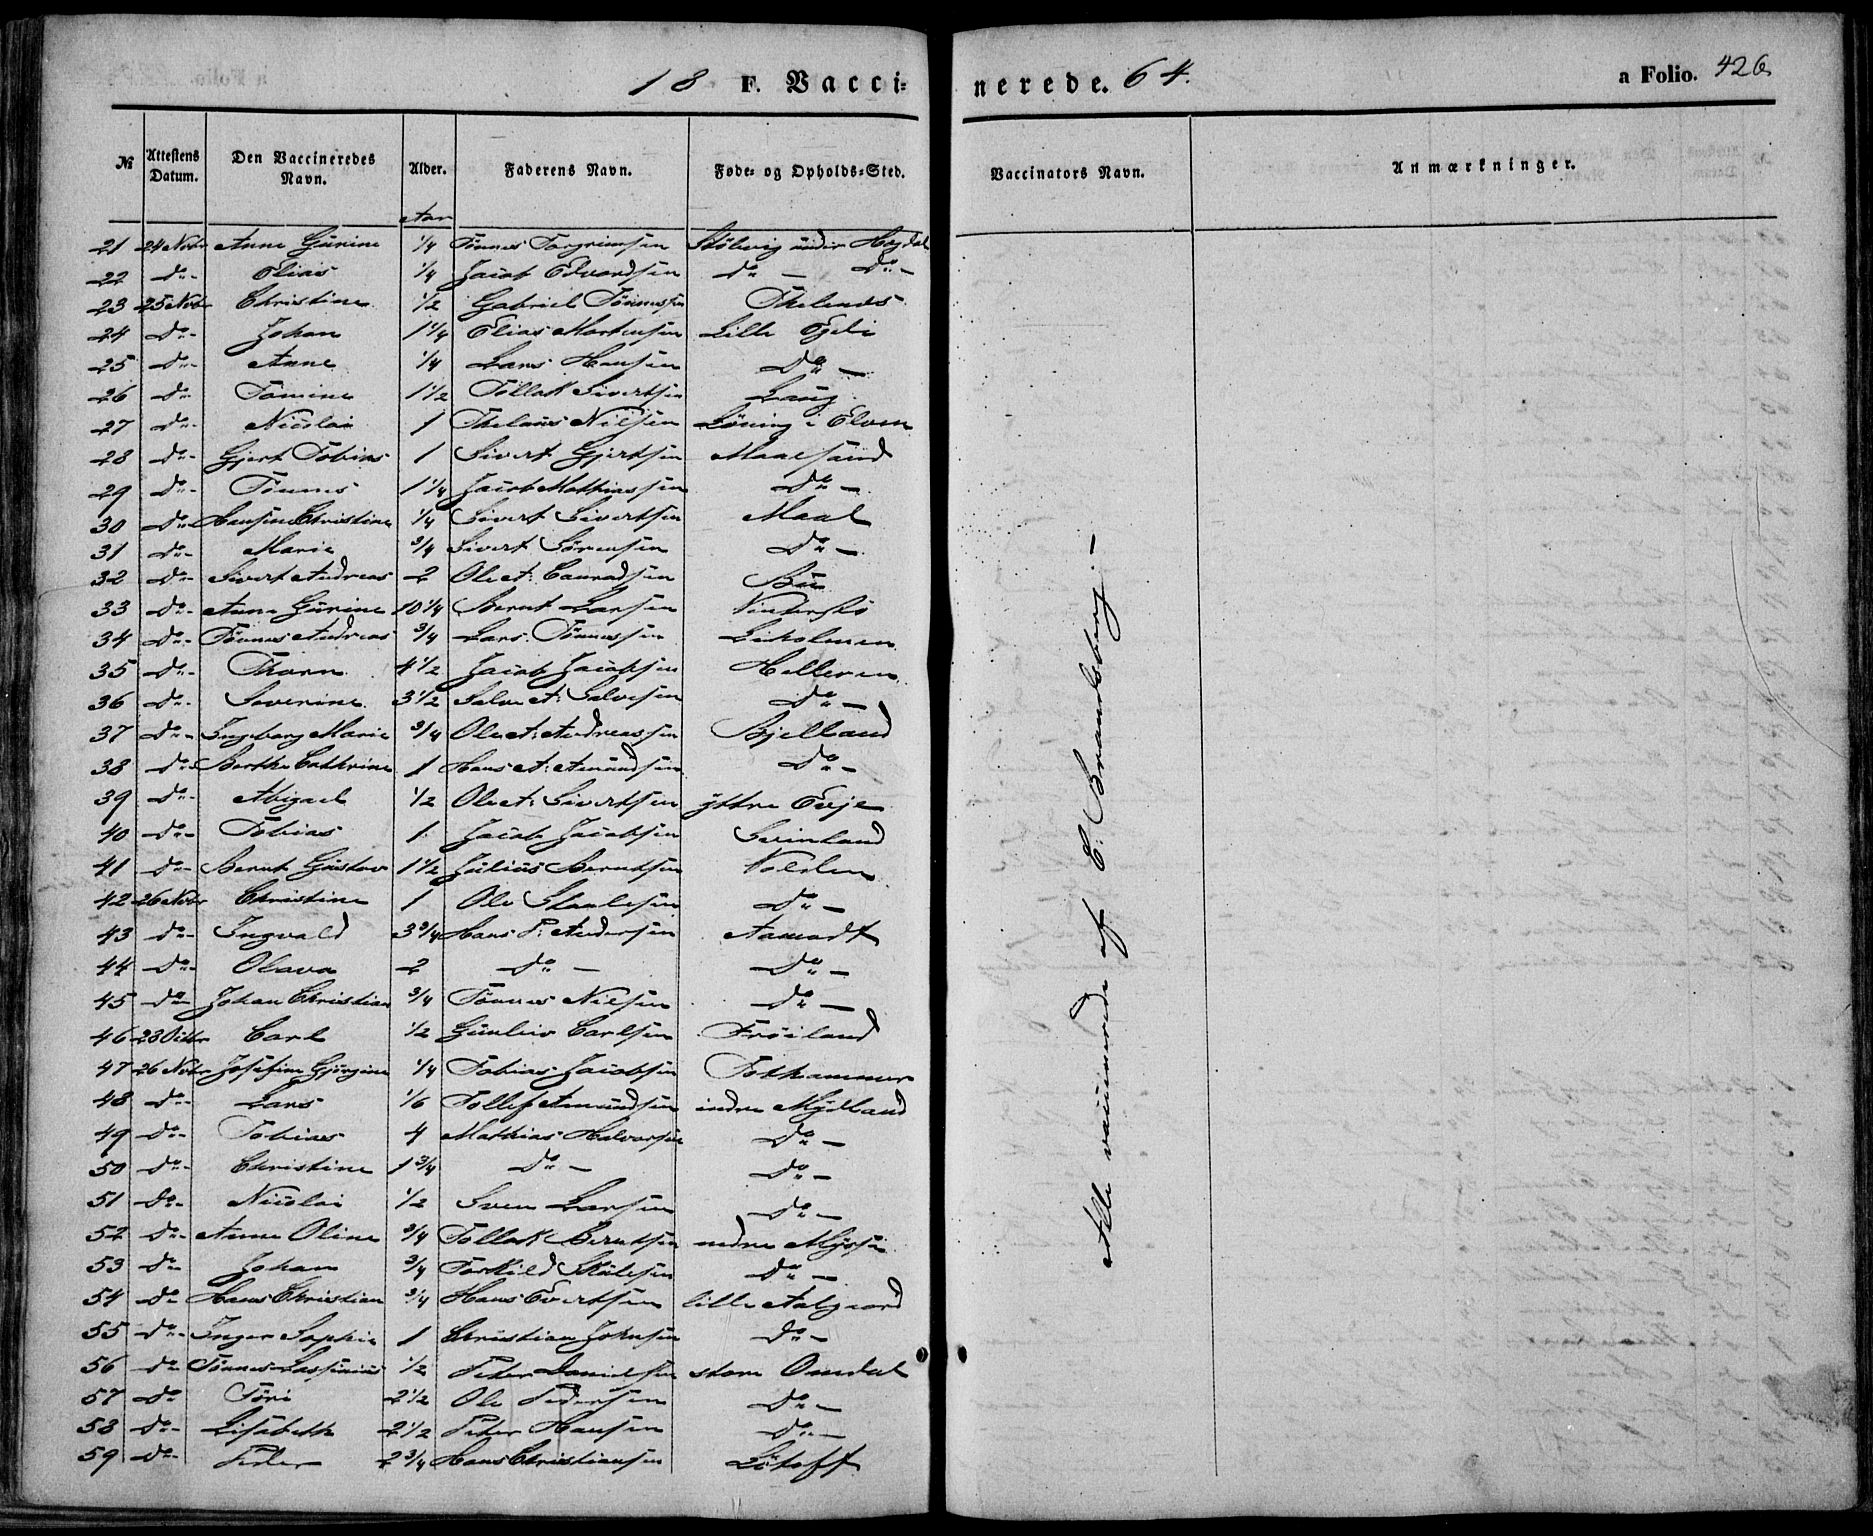 18 F. Vaccinerede. 64. a Folio. 426
№ Attestens Datum. Den Vaccineredes Navn. Alder. Faderens Navn. Føde- og Opholds-Sted. Vaccinators Navn. Anmærkninger.
Aar
21 24 Novbr Anne Gurine 1/4 Tønnes Torgrimsen Stølvig under Hogdal
22 do- Elias 1/4 Jacob Edvardsen do - do -
23 25 Novbr Christine 1/2 Gabriel Tønnessen
24 do- Johan 1 1/4 Elias Mortensen Lille Egeli
25 do- Anne 1/4 Lars Hansen do -
26 do- Tomine 1 1/2 Tollak Sivertsen Haug
27 do- Nicolai 1 Nilsen Løning i Elven
28 do- Gjert Tobias 1 Sivert Gjertsen
29 do- Tønnes 1 1/4 Jacob Mathiassen do -
30 do- Christine 1/4 Sivert Sivertsen
31 do- Marie 3/4 Sivert Sørensen do -
32 do- Sivert Andreas 2 Ole A: Conradsen Bu
33 do- Anne Gurine 10 1/4 Bernt Larsen
34 do- Tønnes Andreas 3/4 Lars Tønnessen Leikolmen
35 do- Thorn 4 1/2 Jacob Jacobsen Helleren
36 do- Severine 3 1/2 Salve A: Salvesen do -
37 do- Ingeborg Marie 3/4 Ole A: Andreassen Bjelland
38 do- Berthe Cathrine 1 Hans A: Amundsen do -
39 do- Abigael 1/2 Ole A: Sivertsen yttre Evje
40 do- Tobias 1 Jacob Jacobsen Svinland
41 do- Bernt Gustav 1 1/2 Julius Berntsen Nolden
42 26 Novbr Christine 1 Ole Staalesen do -
43 do- Ingvald 3 3/4 Hans P: Andersen Aamodt
44 do- Olava 2 do - do -
45 do- Johan Christian 3/4 Tønnes Nilsen do -
46 28 Octbr Carl 1/2 Gunleiv Carlsen Frøiland
47 26 Novbr Josefine Gjørgine 1/4 Tobias Jacobsen Tothammer
48 do- Lars 1/6 Tollef Amundsen indre Mydland
49 do- Tobias 4 Mathias Halvorsen do -
50 do- Christine 1 3/4 do - do -
51 do- Nicolai 1/2 Sven Larsen do -
52 do- Anne Oline 3/4 Tollak Berntsen
53 do- Johan 3/4 Torkild Skulesen do -
54 do- Hans Christian 3/4 Hans Evertsen lille Aalgaard
55 do- Inger Sophie 1 Christian Johnsen do -
56 do- Tønnes 1/2 Peter Danielsen store Omdal
57 do- Tori 2 1/2 Ole Pedersen do -
58 do- Lisabeth 2 1/2 Peter Hansen do -
59 do- Peder 2 3/4 Hans Christiansen Litoff
Alle vaccinerede af C: Brandsberg. -